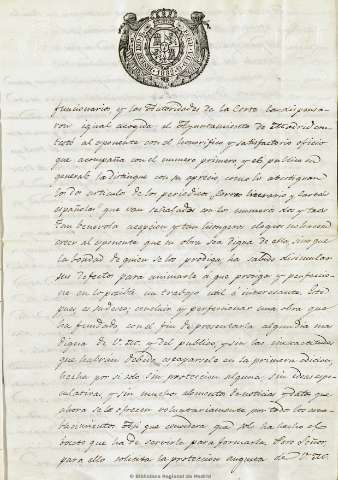 funcionarios y las Autoridades de la Corte la dispensa-
ron igual acogida, el Ayuntamiento de Madrid con-
testó al esponente con el honorifico y satisfactorio oficio
que acompaña con el numero primero, y el publico en
general la distingue con su aprecio, como lo atestiguan
los dos articulos de los periodicos, Correo literario y Cartas
españolas que van señalados con los numeros dos y tres.
Tan benevola acepcion y tan lisongeros elogios no hacen
creer al esponente que su obra sea digna de ellos, sino que
la bondad de quien se los prodiga ha sabido disimular
sus defectos para animarle á que prosiga y perfeccio-
ne en lo posible un trabajo util é interesante. Este
pues es su deseo; concluir y perfeccionar una obra que
ha fundado con el fin de presentarla algun dia mas
digna de V. M. y del publico, y sin las inexactitudes
que habran debido escaparsele en la primera edicion,
hecha por si solo sin proteccion alguna, sin idea espe-
culativa, y sin mucho elemento de noticias y datos que
ahora se le ofrecen voluntariamente por todos los
Asi que considera que solo ha hecho el
boceto que ha de servirle para formarla. Pero Señor,
para ello solicita la proteccion augusta de V. M.
© Biblioteca Regional de Madrid